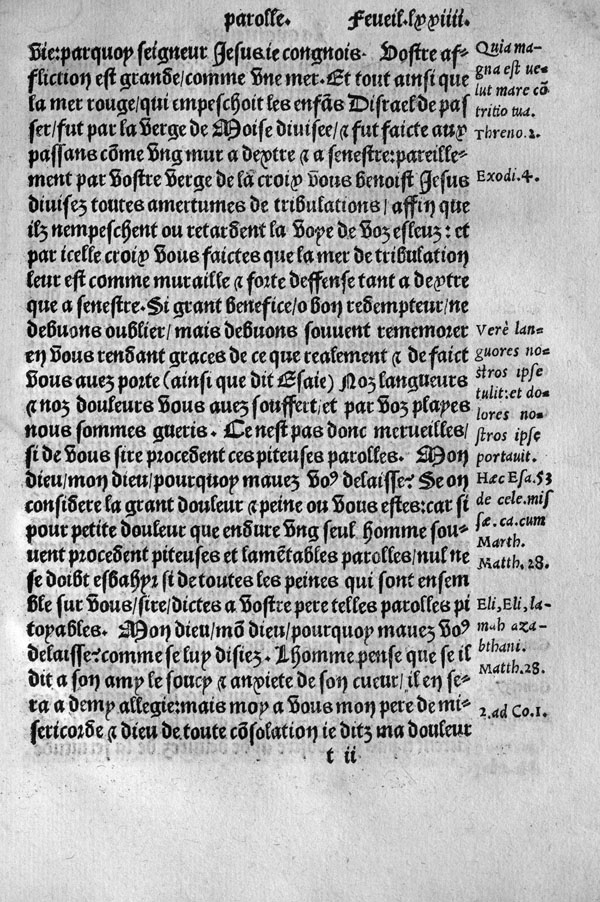 parolle. Feueil.lxxiiii.
vie: parquoy seigneur Jesus ie congnois. Vostre af-
fliction est grande/comme vne mer. Et tout ainsi que
la mer rouge/qui empeschoit les enfãs Disrael de pas
ser/fut par la verge de Moise diuisee/⁊ fut faicte aux
passans cõme vng mur a dextre ⁊ a senestre: pareille-
ment par vostre verge de la croix vous benoist Jesus
diuisez toutes amertumes de tribulations/affin que
ilz nempeschent ou retardent la voye de voz esleuz: et
par icelle croix vous faictes que la mer de tribulation
leur est comme muraille ⁊ forte deffense tant a dextre
que a senestre. Si grant benefice/o bon redempteur/ne
debuons oublier/mais debuons souuent rememorer
en vous rendant graces de ce que realement ⁊ de faict
vous auez porte (ainsi que dit Esaie) Noz langueurs
⁊ noz douleurs vous auez souffert/et par voz playes
nous sommes gueris. Ce nest pas donc merueilles/
si de vous sire procedent ces piteuses parolles. Mon
dieu/mon dieu/pourquoy mauez voꝰ delaisse? Se on
considere la grant douleur ⁊ peine ou vous estes: car si
pour petite douleur que endure vng seul homme sou-
uent procedent piteuses et lamẽtables parolles/nul ne
se doibt esbahyr si de toutes les peines qui sont ensem
ble sur vous/sire/dictes a vostre pere telles parolles pi
toyables. Mon dieu/mõ dieu/pourquoy mauez voꝰ
delaisse? comme se luy disiez. Lhomme pense que se il
dit a son amy le soucy ⁊ anxiete de son cueur/il en se-
ra a demy allegie: mais moy a vous mon pere de mi-
sericorde ⁊ dieu de toute cõsolation ie ditz ma douleur
t ii
Quia ma-
gna est ve-
lut mare cõ
tritio tua.
Threno.2.
Exodi.4.
Verè lan-
guores no-
stros ipse
tulit: et do-
lores no-
stros ipse
portauit.
Hæc Esa.53
de cele.mis
sæ.ca.cum
Marth.
Matth.28.
Eli, Eli, la-
mah aza-
bthani.
Matth.28.
2.ad Co.1.